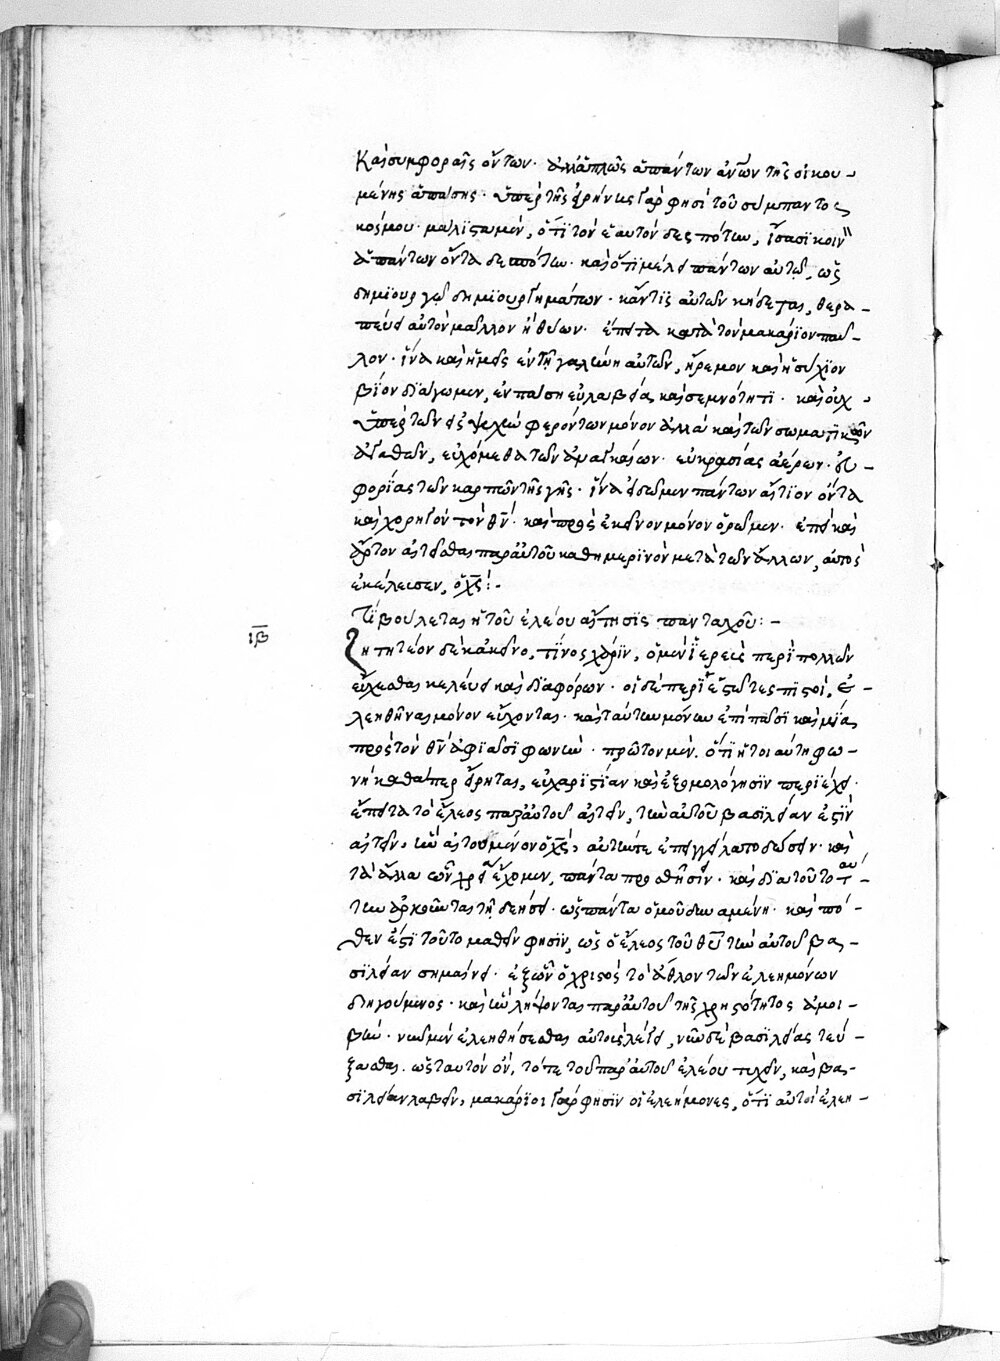 Καὶ συμφοραῖς ὄντων· ἀλλἁπλῶς ἁπάντων ἀνων τῆς οἰκου-
μένης ἁπάσης· ὑπὲρ τῆς εἰρήνης γάρ φησὶ τοῦ σύμπαντος
κόσμου· μάλιστα μὲν, ὅτι τὸν ἑαυτὸν δεσπότην, ἴσασι κοινὸν
ἁπάντων ὄντα δεσπότην· καὶ ὅτι μέλει πάντων αὐτῷ, ὡς
δημιουργῷ δημιουργημάτων· κἄν τις αὐτῶν κήδεται, θερα-
πεύει αὐτὸν μᾶλλον ἢ θύων· ἔπειτα κατὰ τὸν μακάριον παῦ-
λον· ἵνα καὶ ἡμεῖς ἐν τῇ γαλήνῃ αὐτῶν, ἤρεμον καὶ ἡσύχιον
βίον διάγωμεν, ἐν πάσῃ εὐλαβείᾳ καὶ σεμνότητι· καὶ οὐχ
ὑπὲρ τῶν εἰς ψυχὴν φερόντων μόνον ἀλλὰ καὶ τῶν σωματικῶν
ἀγαθῶν, εὐχόμεθα τῶν ἀναγκαίων· εὐκρασίας ἀέρων· εὐ-
φορίας τῶν καρπῶν τῆς γῆς· ἵνα εἰδῶμεν πάντων αἴτιον ὄντα
καὶ χορηγὸν τὸν θν· καὶ πρὸς ἐκεῖνον μόνον ὁρῶμεν· ἐπεὶ καὶ
ἄρτον αἰτεῖσθαι παρ' αὐτοῦ καθημερινὸν μετὰ τῶν ἄλλων, αὐτὸς
ἐκέλευσεν, ὁ χς:-
Τί βούλεται ἡ τοῦ ἐλέου αἴτησις πανταχοῦ:-
ιβ
Ζητητέον δὲ κἀκεῖνο, τίνος χάριν, ὁ μὲν ἱερεὺς περὶ πολλῶν
εὔχεσθαι κελεύει καὶ διαφόρων· οἱ δὲ περιεστῶτες πιστοὶ, ἐ-
λεηθῆναι μόνον εὔχονται· καὶ ταύτην μόνην ἐπὶ πᾶσι καὶ μίαν
πρὸς τὸν θν ἀφιᾶσι φωνὴν· πρῶτον μὲν, ὅτι ἥτοι αὕτη φω-
νὴ καθάπερ εἴρηται, εὐχαριστίαν καὶ ἐξομολόγησιν περιέχει·
ἔπειτα τὸ ἔλεος παρ' αὐτοῦ αἰτεῖν, τὴν αὐτοῦ βασιλείαν ἐστὶν
αἰτεῖν, ἣν αἰτουμένον ὁ χς, αὐτήν τε ἐπαγγείλατο δώσειν· καὶ
τὰ ἄλλα ὧν χρείαν ἔχομεν, πάντα προσθήσειν· καὶ διατοῦτο ταύ-
την ἀρκοῦσαν τῇ δεήσει· ὡς πάντα ὁμοῦ δυναμένη· καὶ πό-
θεν ἐστὶ τοῦτο μαθεῖν φησὶν, ὡς ὁ ἔλεος τοῦ θυ τὴν αὐτοῦ βα-
σιλείαν σημαίνει· ἐξ ὧν ὁ χριστὸς τὸ ἆθλον τῶν ἐλεημόνων
διηγούμενος· καὶ ἣν λήψονται παρ' αὐτοῦ τῆς χρηστότητος ἀμοι-
βὴν· νῦν μὲν ἐλεηθήσεσθαι αὐτοὺς λέγει, νῦν δὲ βασιλείας τεύ-
ξασθαι· ὡς ταυτὸν ὂν, τότε τοῦ παρ' αὐτοῦ ἐλέου τυχεῖν, καὶ βα-
σιλείαν λαβεῖν, μακάριοι γάρ φησιν οἱ ἐλεήμονες, ὅτι αὐτοὶ ἐλεη-